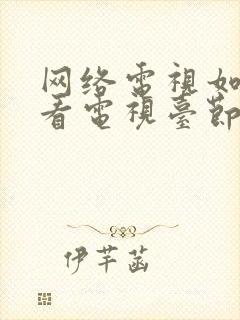 网络電視如
看電視臺節
伊芊菡